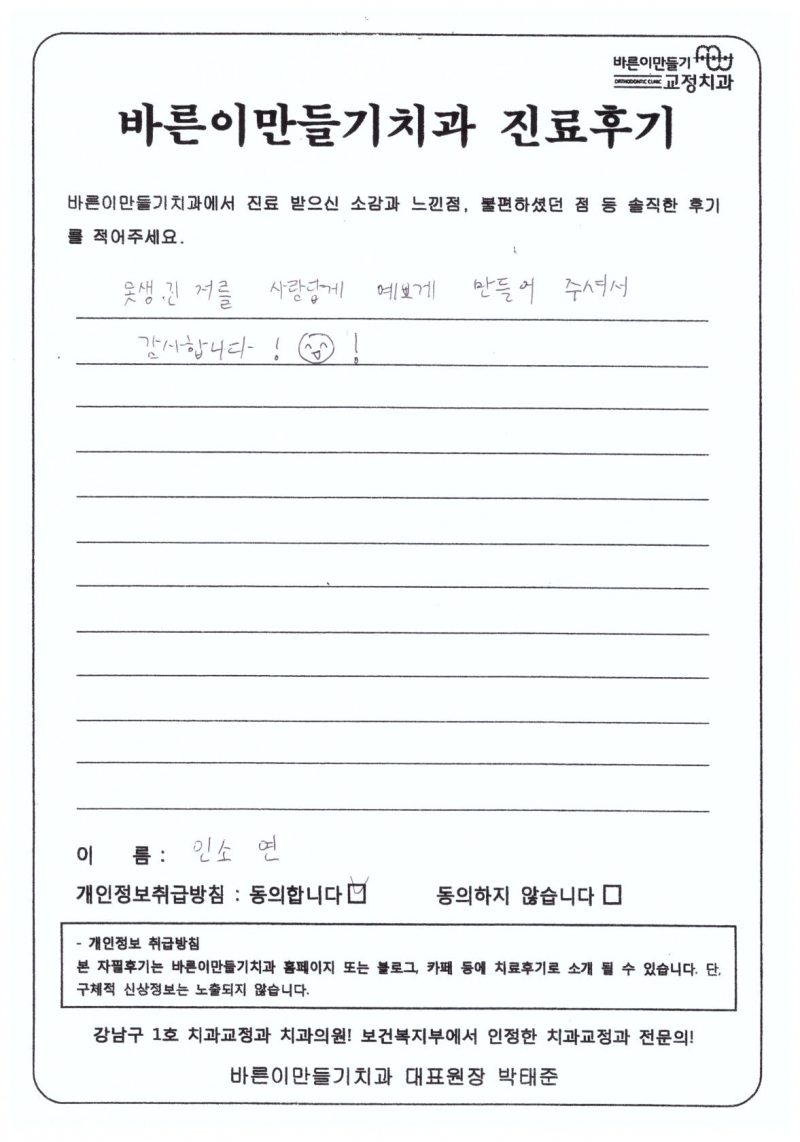 바른이만들기
ORTHODONTIC CLINIC 교정치과
바른이만들기치과 진료후기
바른이만들기치과에서 진료 받으신 소감과 느낀점, 불편하셨던 점 등 솔직한 후기
를 적어주세요.
못생긴 저를 사람답게 예쁘게 만들어 주셔서
감사합니다 ! !
이 름 : 인소연
개인정보취급방침 : 동의합니다 동의하지 않습니다
- 개인정보 취급방침
본 자필후기는 바른이만들기치과 홈페이지 또는 블로그, 카페 등에 치료후기로 소개 될 수 있습니다. 단,
구체적 신상정보는 노출되지 않습니다.
강남구 1호 치과교정과 치과의원! 보건복지부에서 인정한 치과교정과 전문의!
바른이만들기치과 대표원장 박태준